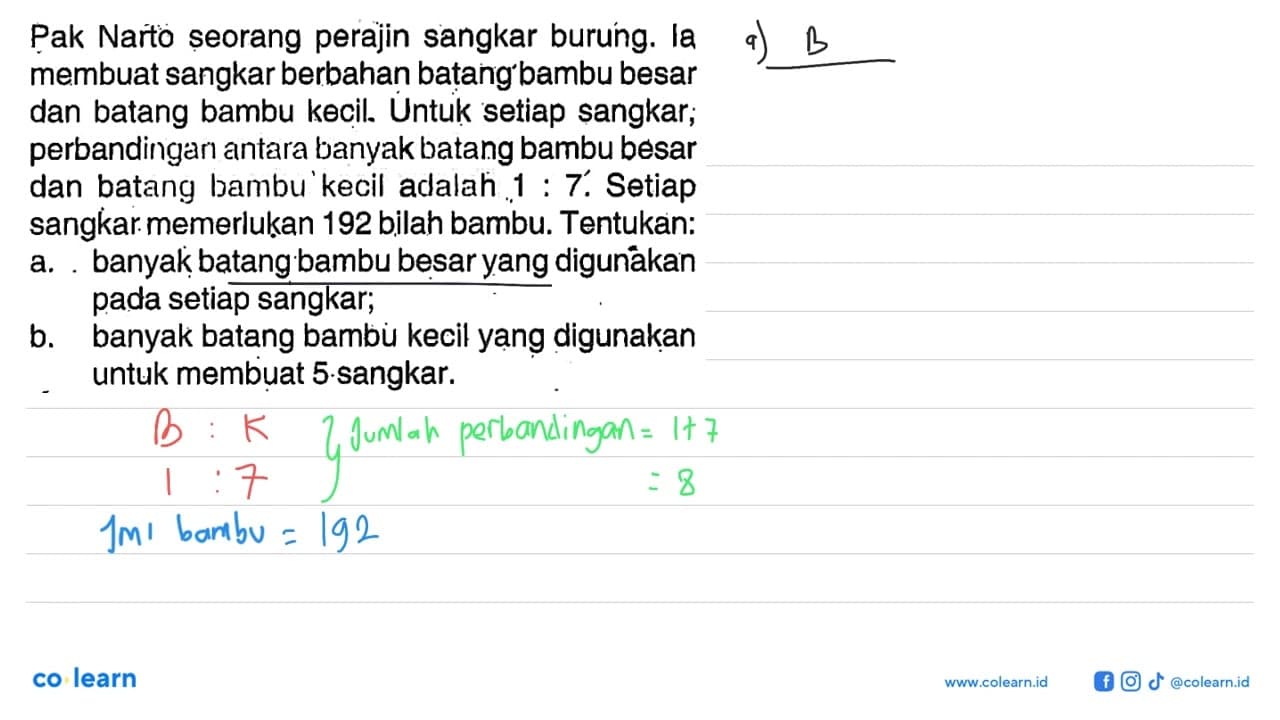 Pak Narto seorang perajin sangkar burung. Ia
membuat sangkar berbahan batang bambu besar
dan batang bambu kecil. Untuk setiap sangkar;
perbandingan antara banyak batang bambu besar
dan batang bambu kecil adalah 1 : 7. Setiap
sangkar memerlukan 192 bilah bambu. Tentukan:
a. banyak batang bambu besar yang digunakan
pada setiap sangkar;
b. banyak batang bambu kecil yang digunakan
untuk membuat 5 sangkar.
a) B
B : K } Jumlah perbandingan = 1+7
1 : 7 = 8
Jml bambu = 192
co learn
www.colearn.id
@colearn.id